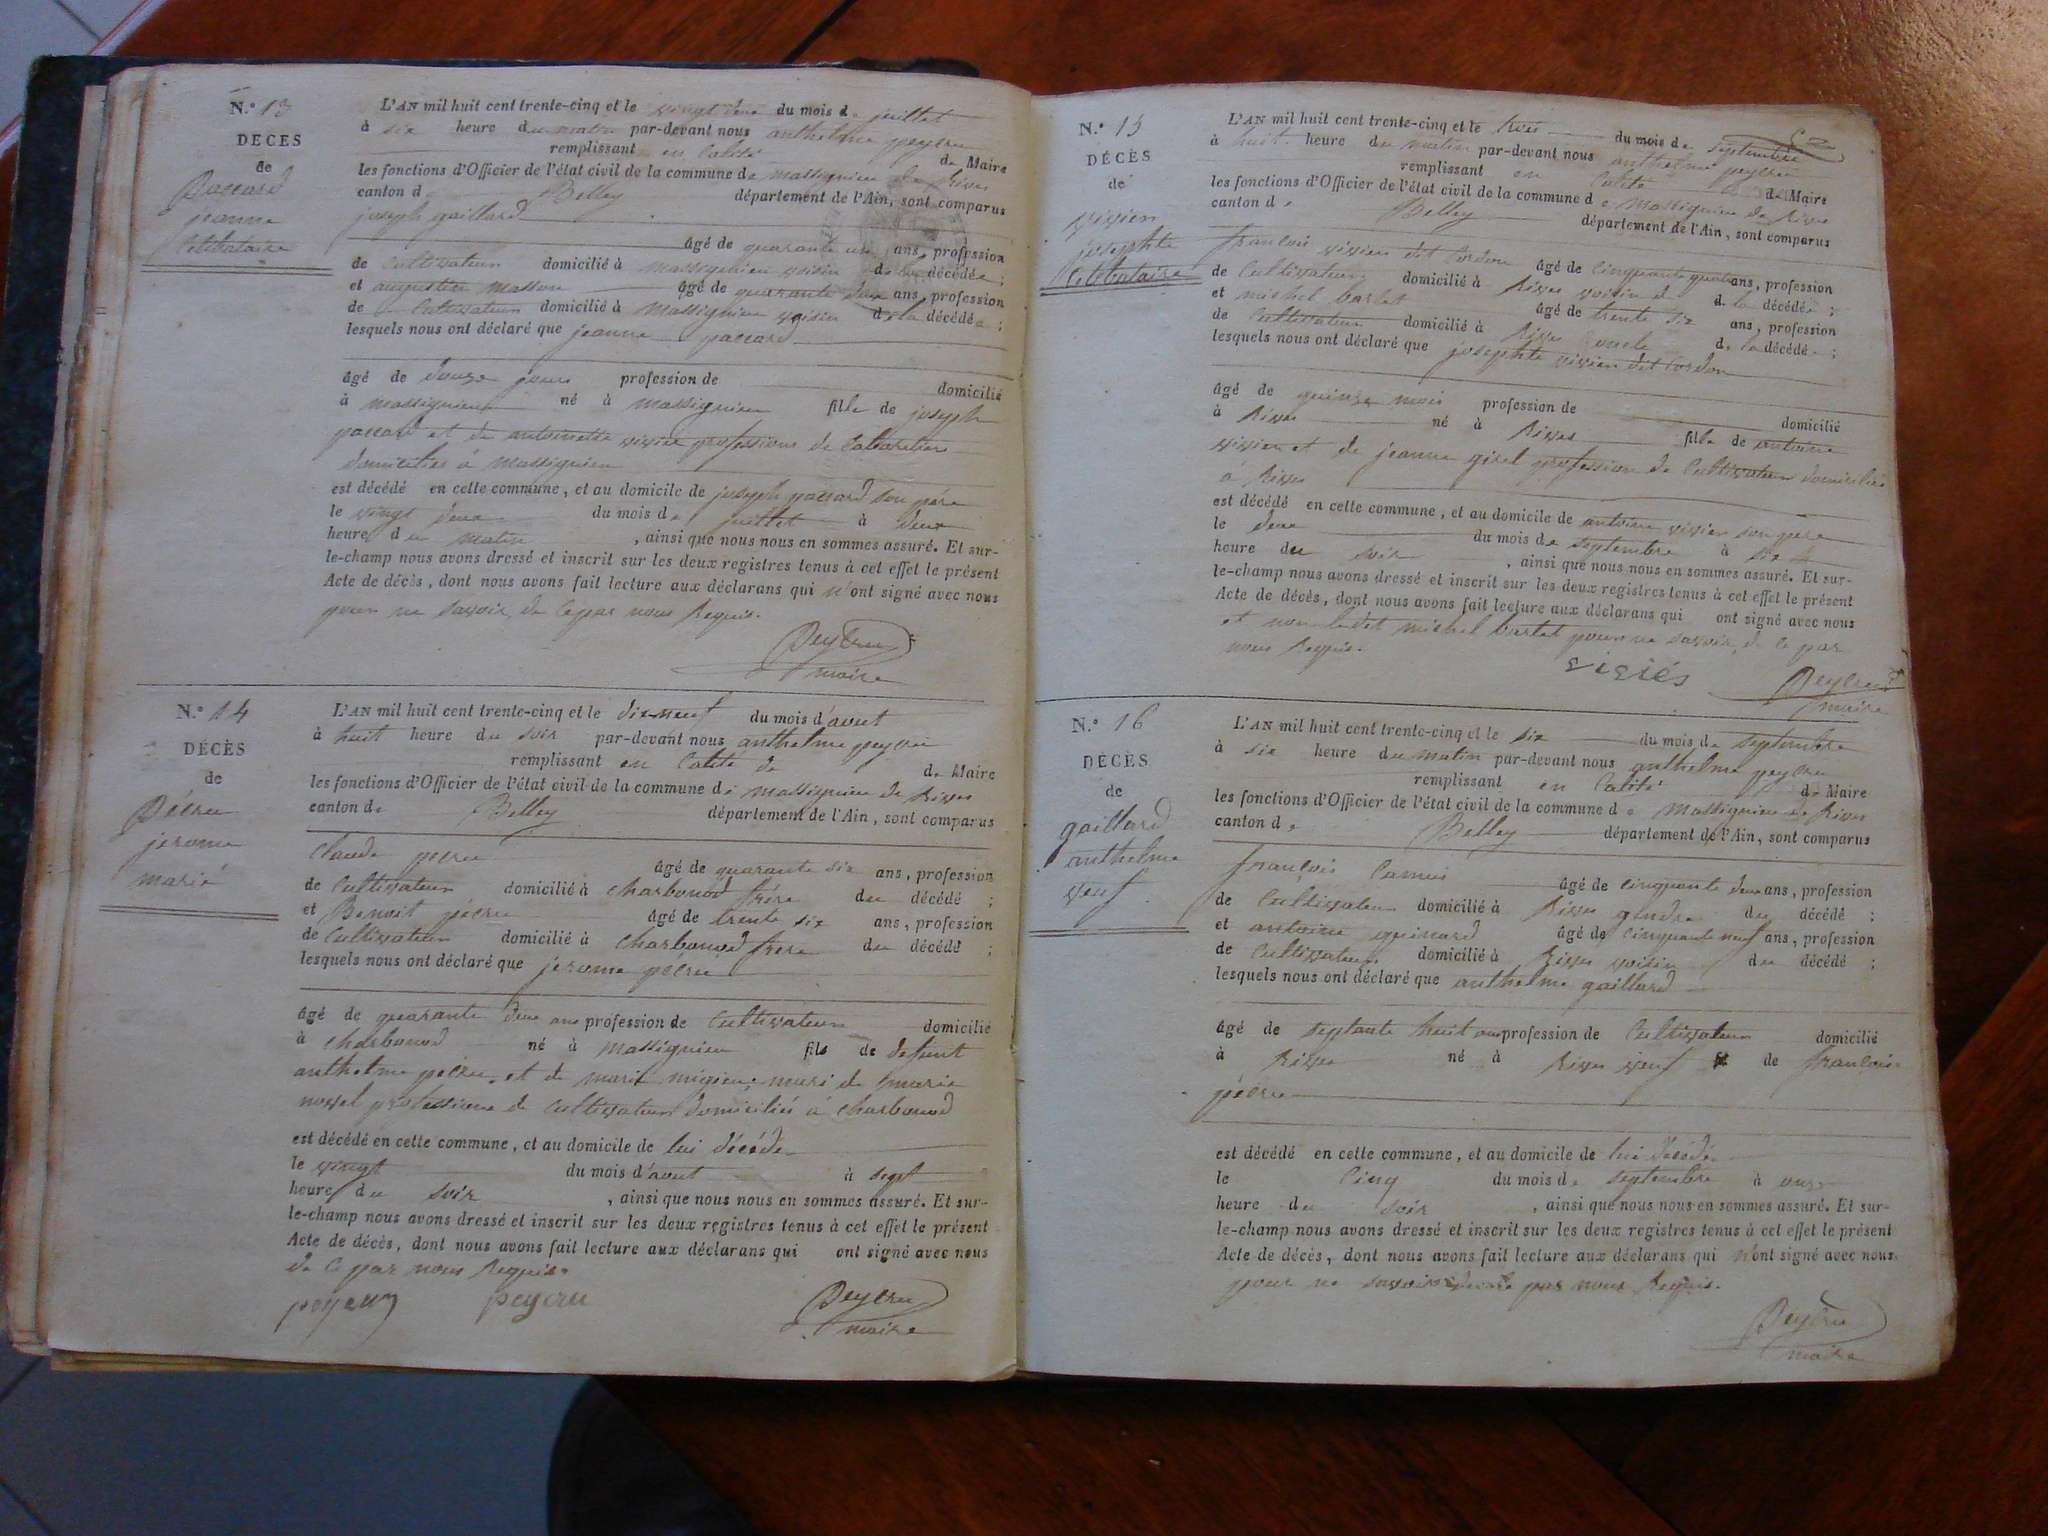 N.° 13
DÉCÈS
de
paccard
jeanne
Célibataire
L'AN mil huit cent trente-cinq et le vingt deux du mois de juillet
à six heure du matin par-devant nous anthelme peycru
remplissant en Calité de Maire
les fonctions d'Officier de l'état civil de la commune de massignieu de Rives
canton d Belley département de l'Ain, sont comparus
joseph gaillard
âgé de quarante un ans, profession
de Cultivateur domicilié à massignieu voisin de la décédée ;
et augustin masson âgé de quarante deux ans, profession
de Cultivateur domicilié à massignieu voisin de la décédée ;
lesquels nous ont déclaré que jeanne paccard
âgé de douze jours profession de domicilié
à massignieu né à massignieu fille de joseph
paccard et de antoinette vivier professions de
domiciliés à massignieu
est décédé en cette commune, et au domicile de joseph paccard son père
le vingt deux du mois de juillet à deux
heure du matin , ainsi que nous nous en sommes assuré. Et sur-
le-champ nous avons dressé et inscrit sur les deux registres tenus à cet effet le présent
Acte de décès, dont nous avons fait lecture aux déclarans qui n'ont signé avec nous
pour ne savoir de ce par nous Requis.
Peycru
maire
N.° 14
DÉCÈS
de
pécru
jerome
marié
L'AN mil huit cent trente-cinq et le dix-neuf du mois d'avut
à huit heure du soir par-devant nous anthelme peycru
remplissant en Calité de de Maire
les fonctions d'Officier de l'état civil de la commune de massignieu de Rives
canton de Belley département de l'Ain, sont comparus
Claude pecru âgé de quarante six ans, profession
de Cultivateur domicilié à charbonod frère du décédé ;
et Benoit pécru âgé de trente six ans, profession
de Cultivateur domicilié à charbonod frère du décédé ;
lesquels nous ont déclaré que jerome pécru
âgé de quarante deux ans profession de Cultivateur domicilié
à charbonod né à massignieu fils de defunt
anthelme pecru et de marie migieu mari de marie
professions de Cultivateur domiciliés à charbonod
est décédé en cette commune, et au domicile de lui décédé
le vingt du mois d'avut à sept
heure du soir , ainsi que nous nous en sommes assuré. Et sur-
le-champ nous avons dressé et inscrit sur les deux registres tenus à cet effet le présent
Acte de décès, dont nous avons fait lecture aux déclarans qui ont signé avec nous
de ce par nous Requis.
peycru peycru Peycru
maire
N.° 15
DÉCÈS
de
vivier
josephte
Célibataire
L'AN mil huit cent trente-cinq et le trois du mois de septembre
à huit heure du matin par-devant nous anthelme peycru
remplissant en Calité de Maire
les fonctions d'Officier de l'état civil de la commune de massignieu de Rives
canton de Belley département de l'Ain, sont comparus
françois vivier dit Cordon âgé de cinquante quatre ans, profession
de Cultivateur domicilié à Rives voisin d de la décédée ;
et michel bertet âgé de trente six ans, profession
de Cultivateur domicilié à Rives oncle de la décédée ;
lesquels nous ont déclaré que josephte vivier dit Cordon
âgé de quinze mois profession de domicilié
à Rives né à Rives fille de antoine
vivier et de jeanne profession de Cultivateur domiciliés
à Rives
est décédé en cette commune, et au domicile de antoine vivier son père
le deux du mois de septembre à six
heure du soir , ainsi que nous nous en sommes assuré. Et sur-
le-champ nous avons dressé et inscrit sur les deux registres tenus à cet effet le présent
Acte de décès, dont nous avons fait lecture aux déclarans qui ont signé avec nous
et non ledit michel bertet pour ne savoir de ce par
nous Requis.
Peycru
maire
N.° 16
DÉCÈS
de
gaillard
anthelme
veuf
L'AN mil huit cent trente-cinq et le six du mois de septembre
à six heure du matin par-devant nous anthelme peycru
remplissant en Calité de Maire
les fonctions d'Officier de l'état civil de la commune de massignieu de Rives
canton de Belley département de l'Ain, sont comparus
françois Camus âgé de cinquante deux ans, profession
de Cultivateur domicilié à Rives gendre du décédé ;
et antoine guinard âgé de cinquante neuf ans, profession
de Cultivateur domicilié à Rives voisin du décédé ;
lesquels nous ont déclaré que anthelme gaillard
âgé de septante huit ans profession de Cultivateur domicilié
à Rives né à Rives veuf de françoise
pécru
est décédé en cette commune, et au domicile de lui décédé
le Cinq du mois de septembre à onze
heure du soir , ainsi que nous nous en sommes assuré. Et sur-
le-champ nous avons dressé et inscrit sur les deux registres tenus à cet effet le présent
Acte de décès, dont nous avons fait lecture aux déclarans qui n'ont signé avec nous
pour ne savoir de ce par nous Requis.
Peycru
maire